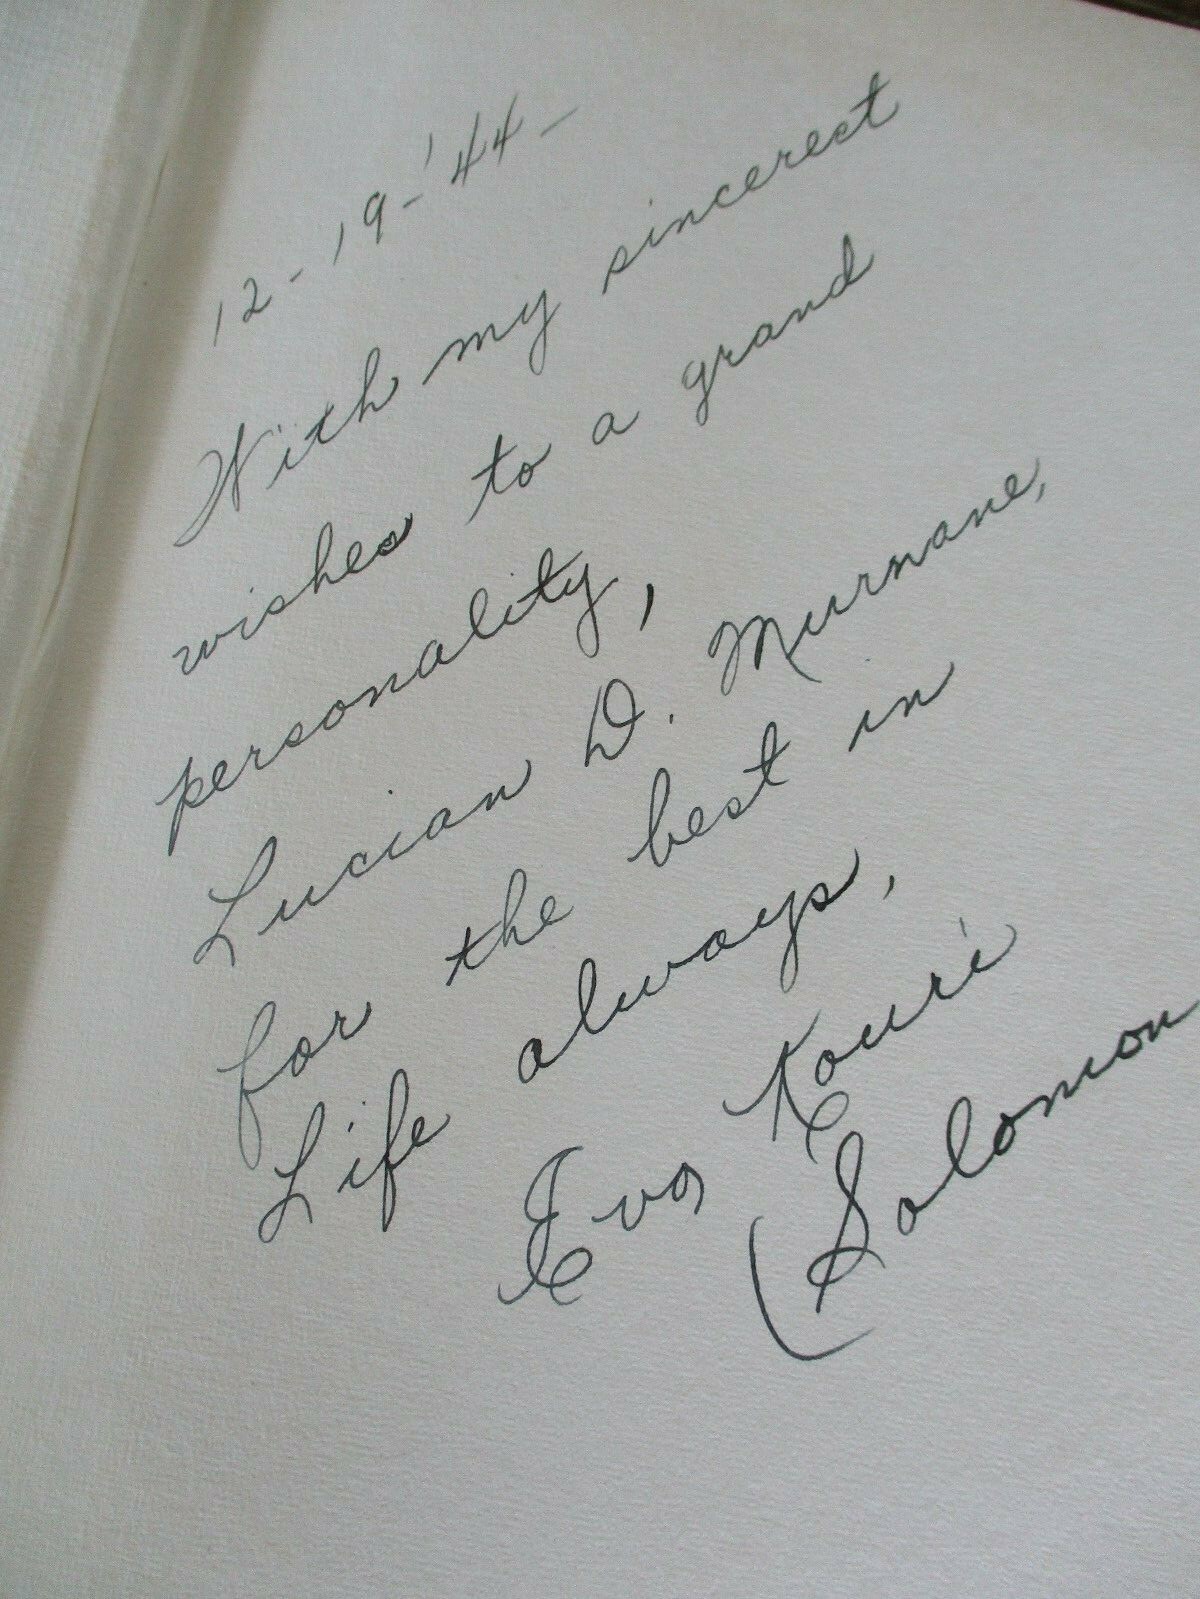 12-19-'44-
With my sincerest
wishes to a grand
personality,
Lucian D. Murnane,
for the best in
Life always,
Eva Kouri
Solomon